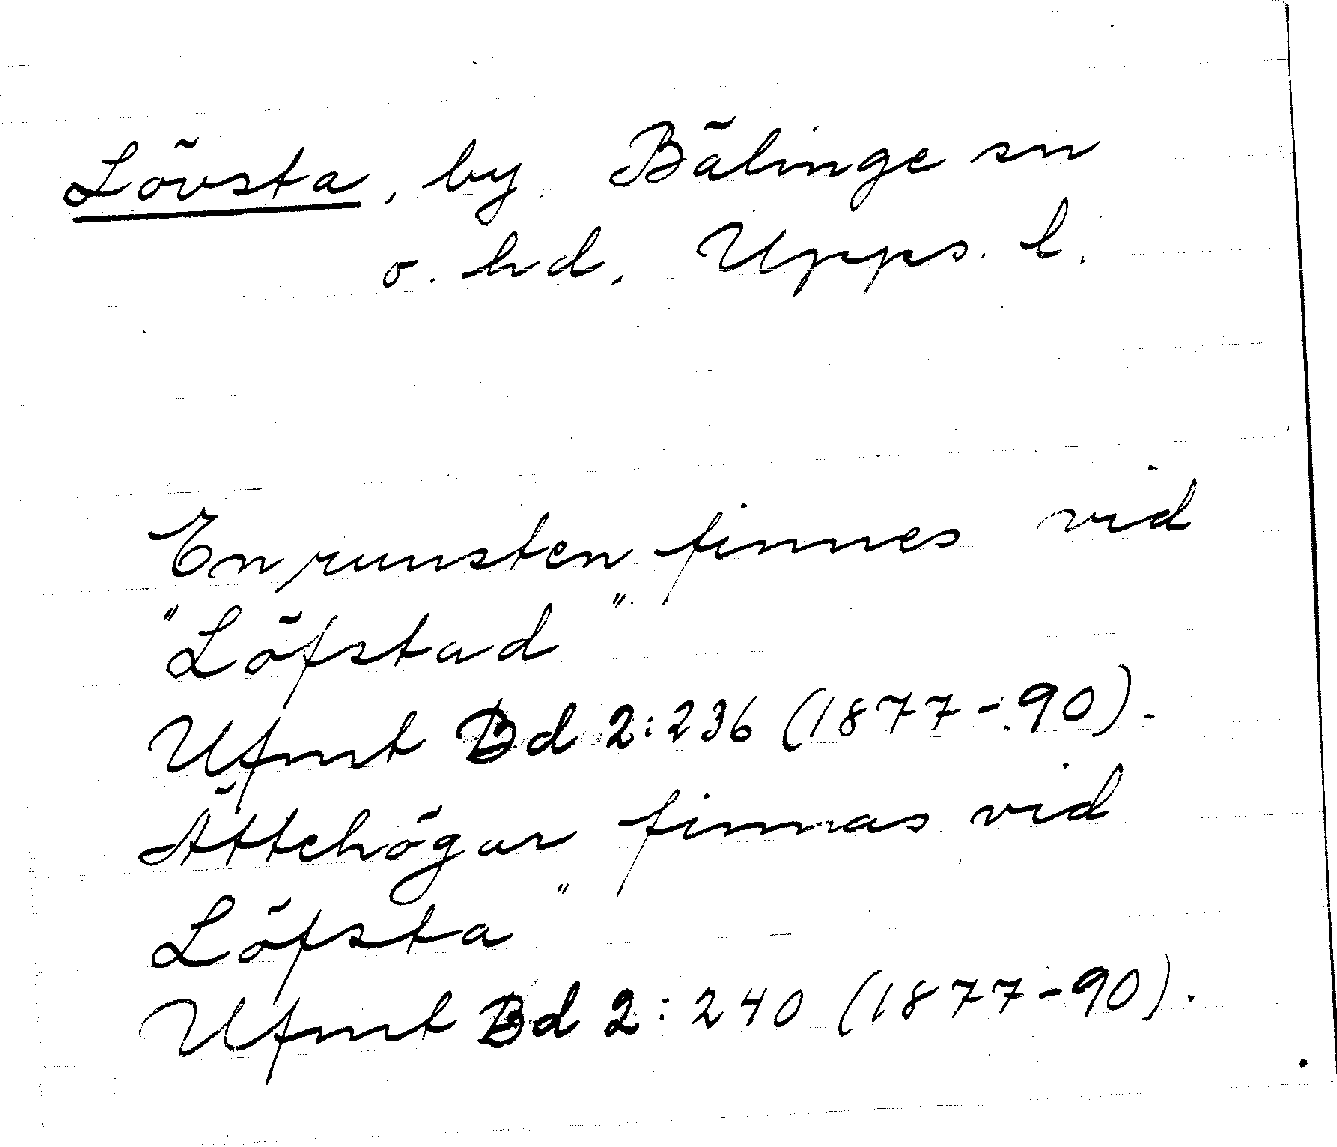 Lövsta, by Bälinge sn
o. hd, Upps. l.
En runsten finnes vid
"Löfstad".
Ufmt Bd 2:236 (1877-90).
Ättehögar finnas vid
Löfsta"
Ufmt Bd 2:240 (1877-90).